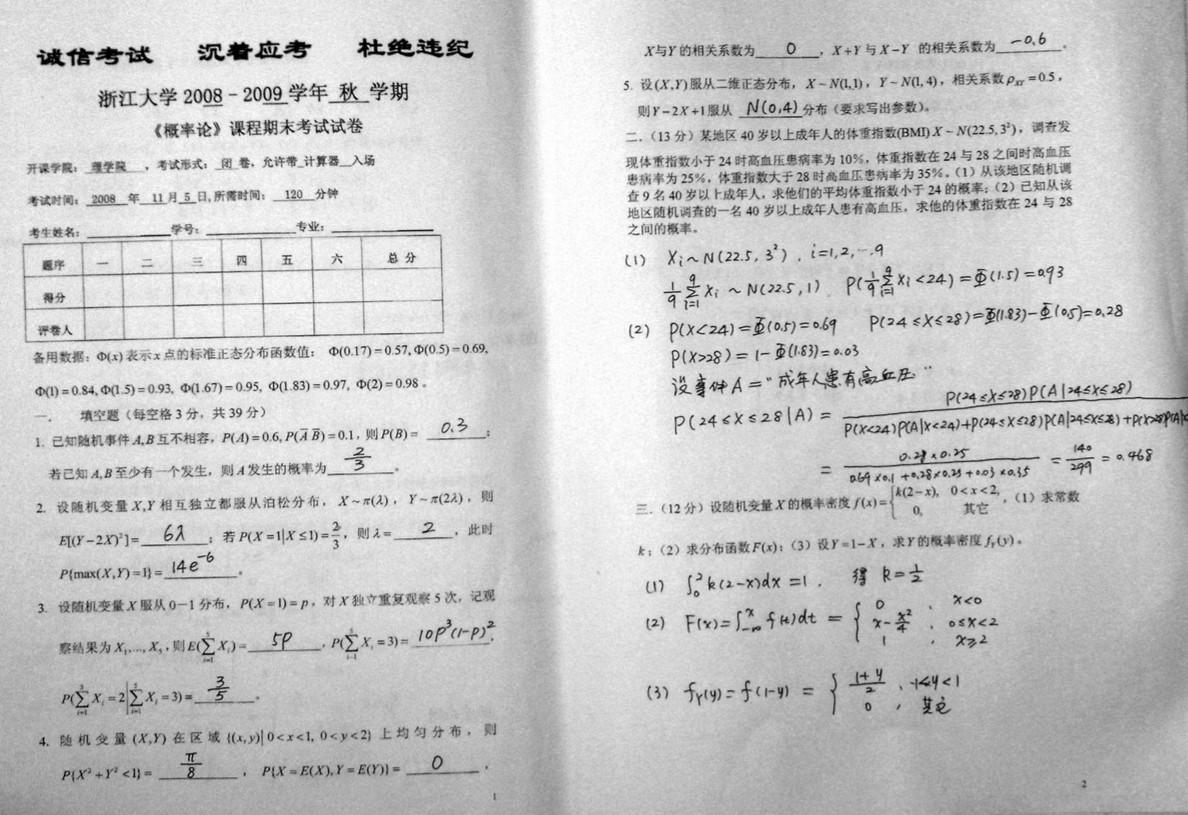 诚信考试 沉着应考 杜绝违纪
浙江大学 2008﹣2009 学年 秋 学期
《概率论》课程期末考试试卷
开课学院: 理学院 ,考试形式: 闭 卷,允许带 计算器 入场
考试时间: 2008 年 11 月 5 日,所需时间: 120 分钟
考生姓名: 学号: 专业:
题序 一 二 三 四 五 六 总 分
得分
评卷人
备用数据:Φ(x) 表示 x 点的标准正态分布函数值: Φ(0.17) = 0.57, Φ(0.5) = 0.69,
Φ(1) = 0.84, Φ(1.5) = 0.93, Φ(1.67) = 0.95, Φ(1.83) = 0.97, Φ(2) = 0.98 。
一. 填空题(每空格 3 分,共 39 分)
1. 已知随机事件 A,B 互不相容,P(A) = 0.6, P(A̅ B̅) = 0.1,则 P(B) = 0.3 ;
若已知 A,B 至少有一个发生,则 A 发生的概率为 2/3 。
2. 设随机变量 X,Y 相互独立都服从泊松分布, X ~ π(λ), Y ~ π(2λ), 则
E[(Y−2X)²] = 6λ ;若 P(X=1|X≤1) = 2/3,则 λ = 2 ,此时
P{max(X,Y)=1} = 14e⁻⁶ 。
3. 设随机变量 X 服从 0−1 分布, P(X=1) = p, 对 X 独立重复观察 5 次,记观
察结果为 X₁,..., X₅,则 E(∑_{i=1}^{5} X_i) = 5p ,P(∑_{i=1}^{5} X_i = 3) = 10p³(1-p)² ,
P(∑_{i=1}^{3} X_i = 2|∑_{i=1}^{5} X_i = 3) = 3/5 。
4. 随机变量 (X,Y) 在区域 {(x,y)| 0<x<1, 0<y<2} 上均匀分布, 则
P{X²+Y²<1} = π/8 , P{X=E(X),Y=E(Y)} = 0 ,
1
X 与 Y 的相关系数为 0 ,X+Y 与 X−Y 的相关系数为 −0.6 。
5. 设 (X,Y) 服从二维正态分布, X ~ N(1,1), Y ~ N(1,4),相关系数 ρ_{XY} = 0.5,
则 Y−2X+1 服从 N(0,4) 分布(要求写出参数)。
二.(13 分)某地区 40 岁以上成年人的体重指数(BMI) X ~ N(22.5, 3²),调查发
现体重指数小于 24 时高血压患病率为 10%,体重指数在 24 与 28 之间时高血压
患病率为 25%,体重指数大于 28 时高血压患病率为 35%。(1)从该地区随机调
查 9 名 40 岁以上成年人,求他们的平均体重指数小于 24 的概率;(2)已知从该
地区随机调查的一名 40 岁以上成年人患有高血压,求他的体重指数在 24 与 28
之间的概率。
(1) X_i ~ N(22.5, 3²), i=1,2,…,9
1/9 ∑_{i=1}^{9} X_i ~ N(22.5, 1) P(1/9 ∑_{i=1}^{9} X_i < 24) = Φ(1.5) = 0.93
(2) P(X<24) = Φ(0.5) = 0.69 P(24≤X≤28) = Φ(1.83) − Φ(0.5) = 0.28
P(X>28) = 1 − Φ(1.83) = 0.03
设事件 A = "成年人患有高血压"
P(24≤X≤28|A) = P(24≤X≤28)P(A|24≤X≤28) / P(X<24)P(A|X<24)+P(24≤X≤28)P(A|24≤X≤28)+P(X>28)P(A|
= 0.28×0.25 / 0.69×0.1+0.28×0.25+0.03×0.35 = 140/299 = 0.468
三.(12 分)设随机变量 X 的概率密度 f(x) = { k(2−x), 0<x<2, 0, 其它 ,(1)求常数
k;(2)求分布函数 F(x);(3)设 Y=1−X,求 Y 的概率密度 f_Y(y)。
(1) ∫₀² k(2−x)dx = 1, 得 k = 1/2
(2) F(x) = ∫_{-∞}^{x} f(t)dt = { 0 , x<0
x − x²/4 , 0≤x<2
1 , x≥2
(3) f_Y(y) = f(1−y) = { 1+y/2 , -1<y<1
0 , 其它
2